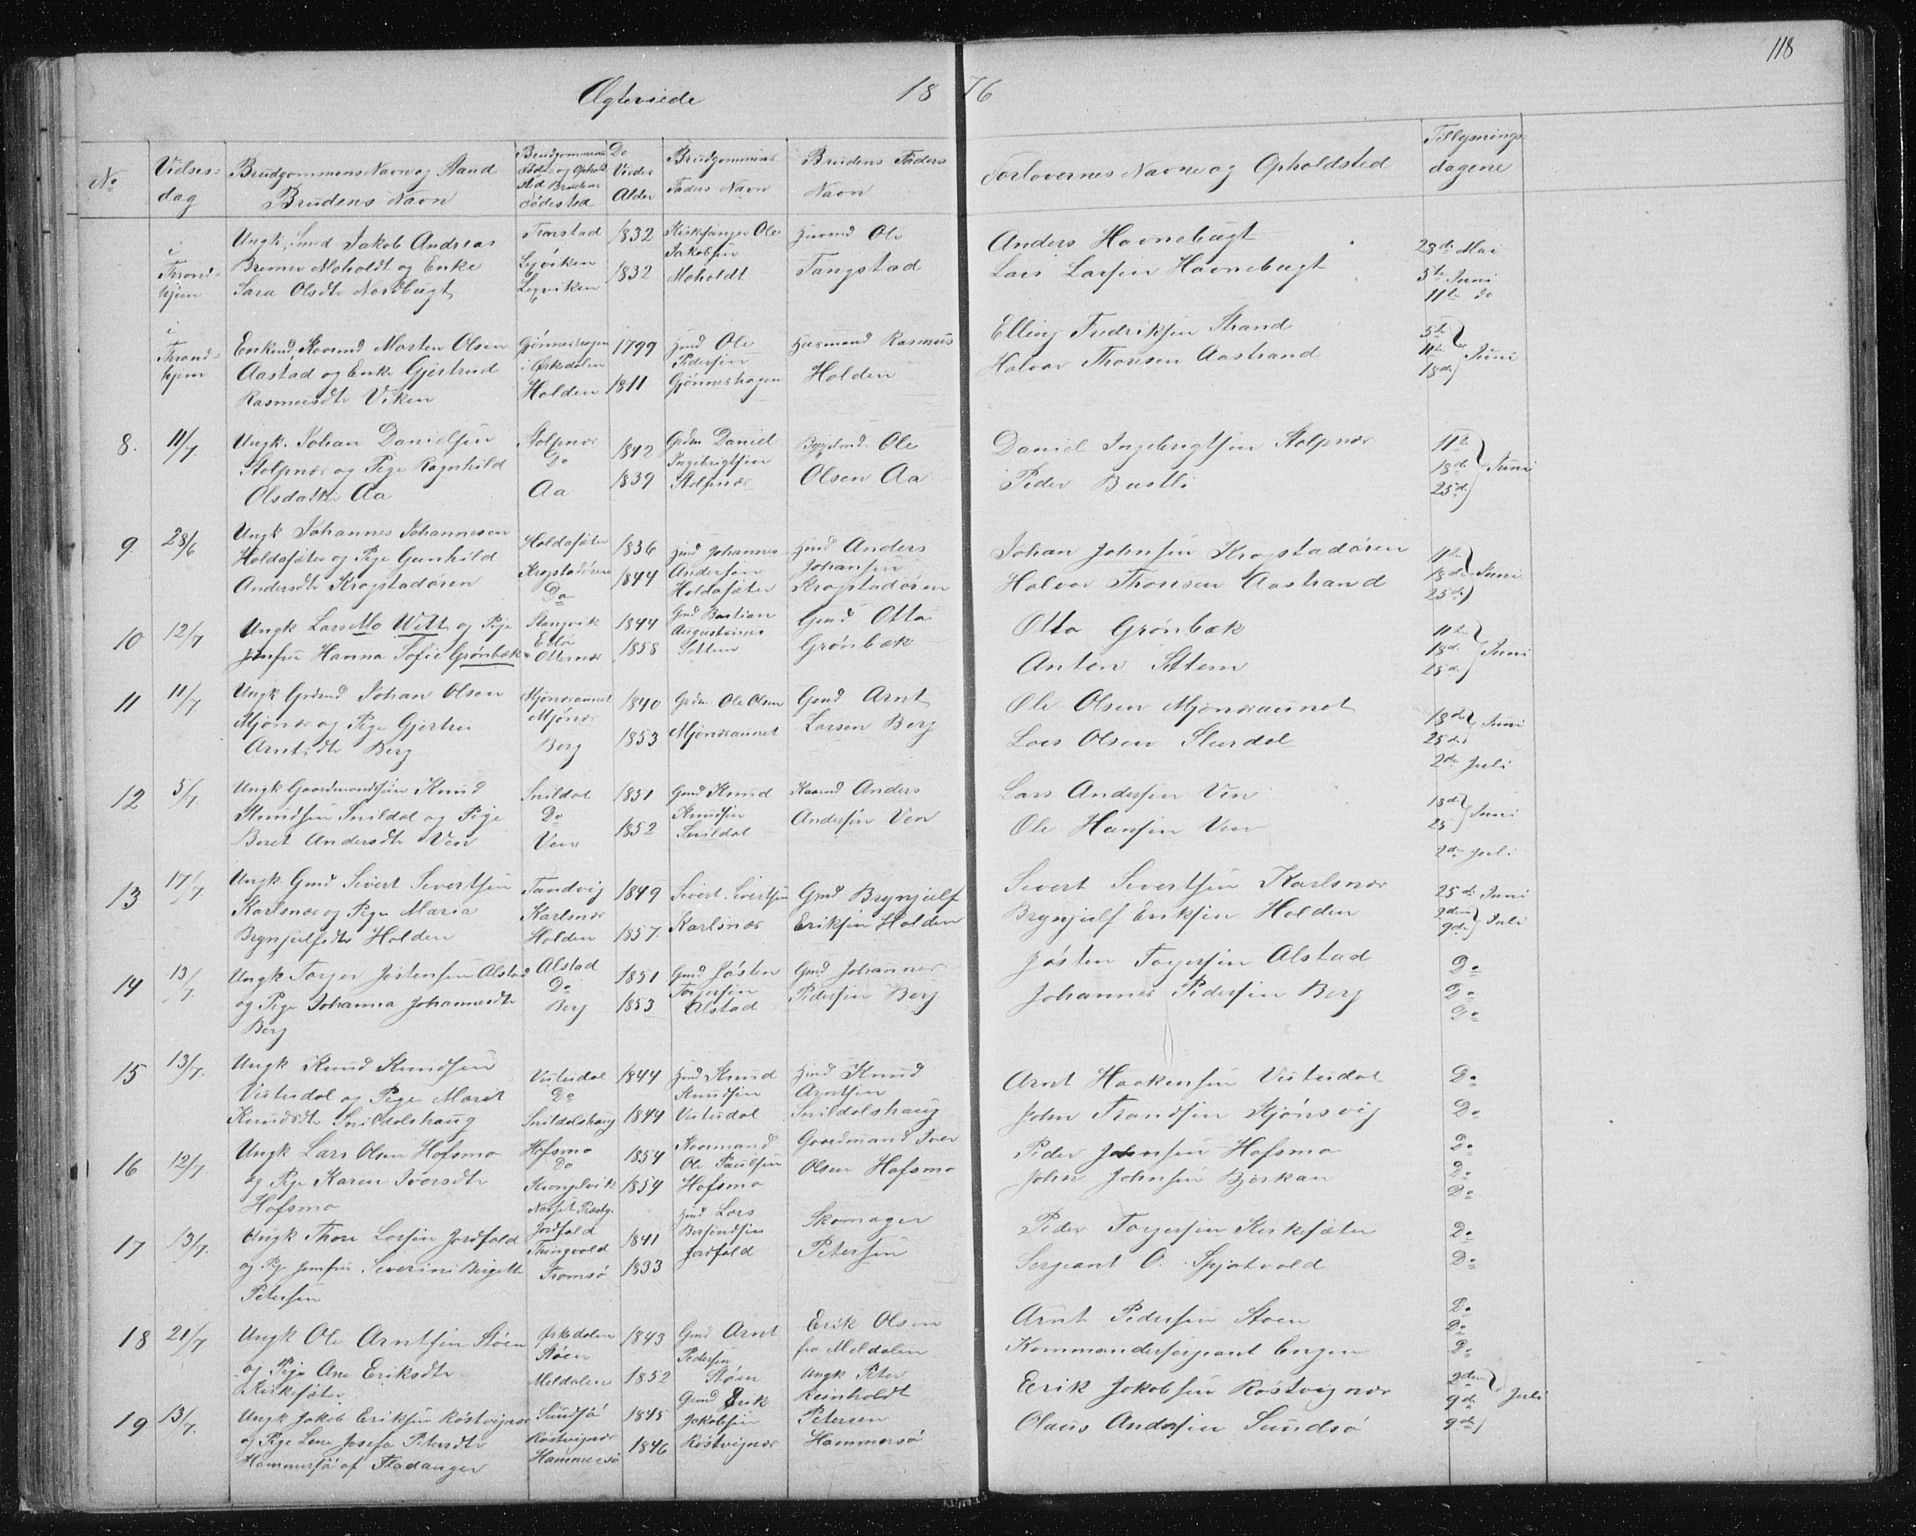 118
Ægteviede 1876
No
Vielses=
dag
Brudgommens Navn og Stand
Brudens Navn
Brudgommens
Føde- og Ophold
sted Brudens
Fødested
De
Viedes
Alder
Brudgommens
Faders Navn
Brudens Faders
Navn
Forlovernes Navne og Opholdsted
Tillysnings-
dagene
i
Thrond=
hjem
Ungk. Smed Jakob Andreas
Bremer Moholdt og Enke
Sara Olsdtr Nordbugt
Leqviken
1832
1832
Kirksanger Ole
Jakobsen
Moholdt
Huusmd Ole
Tangstad
Anders Havnebugt
Lars Larsen Havnebugt
28de Mai
5te Juni
11te do
i
Thrond=
hjem
Enkemd Kaarmd Morten Olsen
Aastad og Enke Gjertrud
Rasmusdtr Viken
Gjønneshagen
i Ørkedalen
Holden
1799
1811
Hmd Ole
Pedersen
Gjønneshagen
Huusmand Rasmus
Holden
Elling Fredriksen Strand
Halvor Thonsen Aastrand
5te
11te
18de
Juni
8.
11/7
Ungk. Johan Danielsen
Stolpnær og Pige Ragnhild
Olsdatter Aa
Stolpnær
Do
Aa
1842
1839
Grdm. Daniel
Ingebrigtsen
Stolpnær
Bygselmd. Ole
Olsen Aa
Daniel Ingebrigtsen Stolpnær
Peder Bustli
11te
18de
25de
Juni
9.
28/6
Ungk Johannes Johannesen
Holdasæter og Pige Gunhild
Andersdtr Krogstadøren
Holdasæter
Krogstadøren
Do
1836
1844
Hmd Johannes
Andersen
Holdasæter
Hmd Anders
Johansen
Krogstadøren
Johan Johnsen Krogstadøren
Halvor Thonsen Aastrand
11te
18de
25de
Juni
10
12/7
Ungk Lars Mo Witt og Pige
Jomfru Hanna Sofie Grønbæk
Stangvik
Otternær
1844
1858
Gmd Bastian
Augustinus
Settem
Gmd Otto
Grønbæk
Otto Grønbæk
Anton Settem
11te
18de
25de
Juni
11
11/7
Ungk Grdmd Johan Olsen
Mjønær og Pige Gjertru
Arntsdtr Berg
Mjønæraunet
Mjønær
Berg
1840
1853
Grdm Ole Olsen
Mjønæraunet
Gmd Arnt
Larsen Berg
Ole Olsen Mjønæraunet
Lars Olsen Slørdal
18de
25de
Juni
2den Juli
12
5/7
Ungk Gaardmandssøn Knud
Knudsen Snildal og Pige
Beret Andersdtr Ven
Snildal
Do
Ven
1851
1852
Gmd Knud
Knudsen
Snildal
Kaarmd Anders
Andersen Ven
Lars Andersen Ven
Ole Hansen Ven
18de
25
Juni
2den Juli
13
17/7.
Ungk. Gmd Sivert Sivertsen
Karlsnær og Pige Maria
Brynjulfsdtr Holden
Tandvig
Karlsnær
Holden
1849
1857.
Sivert Sivertsen
Karlsnær
Gmd Brynjulf
Eriksen Holden
Sivert Sivertsen Karlsnær
Brynjulf Eriksen Holden
25de Juni
2den
9de
Juli
14
13/7.
Ungk Torger Jøstensen Alstad
og Pige Johanna Johannesdtr
Berg
Alstad
Do
Berg
1851
1853
Gmd Jøsten
Torgersen
Alstad
Gmd Johannes
Pedersen Berg
Jøsten Torgersen Alstad
Johannes Pedersen Berg
Do
Do
Do
15
13/7.
Ungk Knud Knudsen
Vuttudal og Pige Marit
Knudsdtr Snildalshaug
Vuttudal
Do
Snildalshaug
1844
1844
Hmd Knud
Knudsen
Vuttudal
Hmd Knud
Arntsen
Snildalshaug
Arnt Haakensen Vuttudal
John Trondsen Kjønsvig
Do
Do
Do
16
12/7
Ungk Lars Olsen Hofsmo
og Pige Karen Iversdtr
Hofsmo
Hofsmo
Do
Kongelvik
1854
1854
Kaarmand
Ole Paulsen
Hofsmo
Gaardmand Iver
Olsen Hofsmo
Peder Johnsen Hofsmo
John Johnsen Bjørkan
Do
Do
17
13/7.
Ungk Thore Larsen Jordfald
og Pige Jomfru Severine Birgitte
Petersen
Næsset Præstg.
Jordfald
Thingvold
Tromsø
1841
1833
Hmd Lars
Jordfald
Skomager
Petersen
Peder Torgersen Kirksæter
Sergeant O. Spjøtvold
Do
Do
Do
18
21/7
Ungk Ole Arntsen Støen
og Pige Ane Eriksdtr
Kirksæter
Ørkedalen
Støen
Meldalen
1843
1852
Gmd Arnt
Pedersen
Støen
Erik Olsen
fra Meldalen
Arnt Pedersen Støen
Kommandersergeant Engen
Do
Do
19
13/7.
Ungk Jakob Eriksen Røstvignær
og Pige Lene Josefa Petersdtr
Hammersø af Fladanger
Sundsø
Røstvignær
Hammersø
1845
1846
Gmd Erik
Jakobsen
Røstvignær
Ungk Peter
Reinholdt
Petersen
Hammersø
Erik Jakobsen Røstvignær
Olaus Andersen Sundsø
2den
9de
9de
Juli